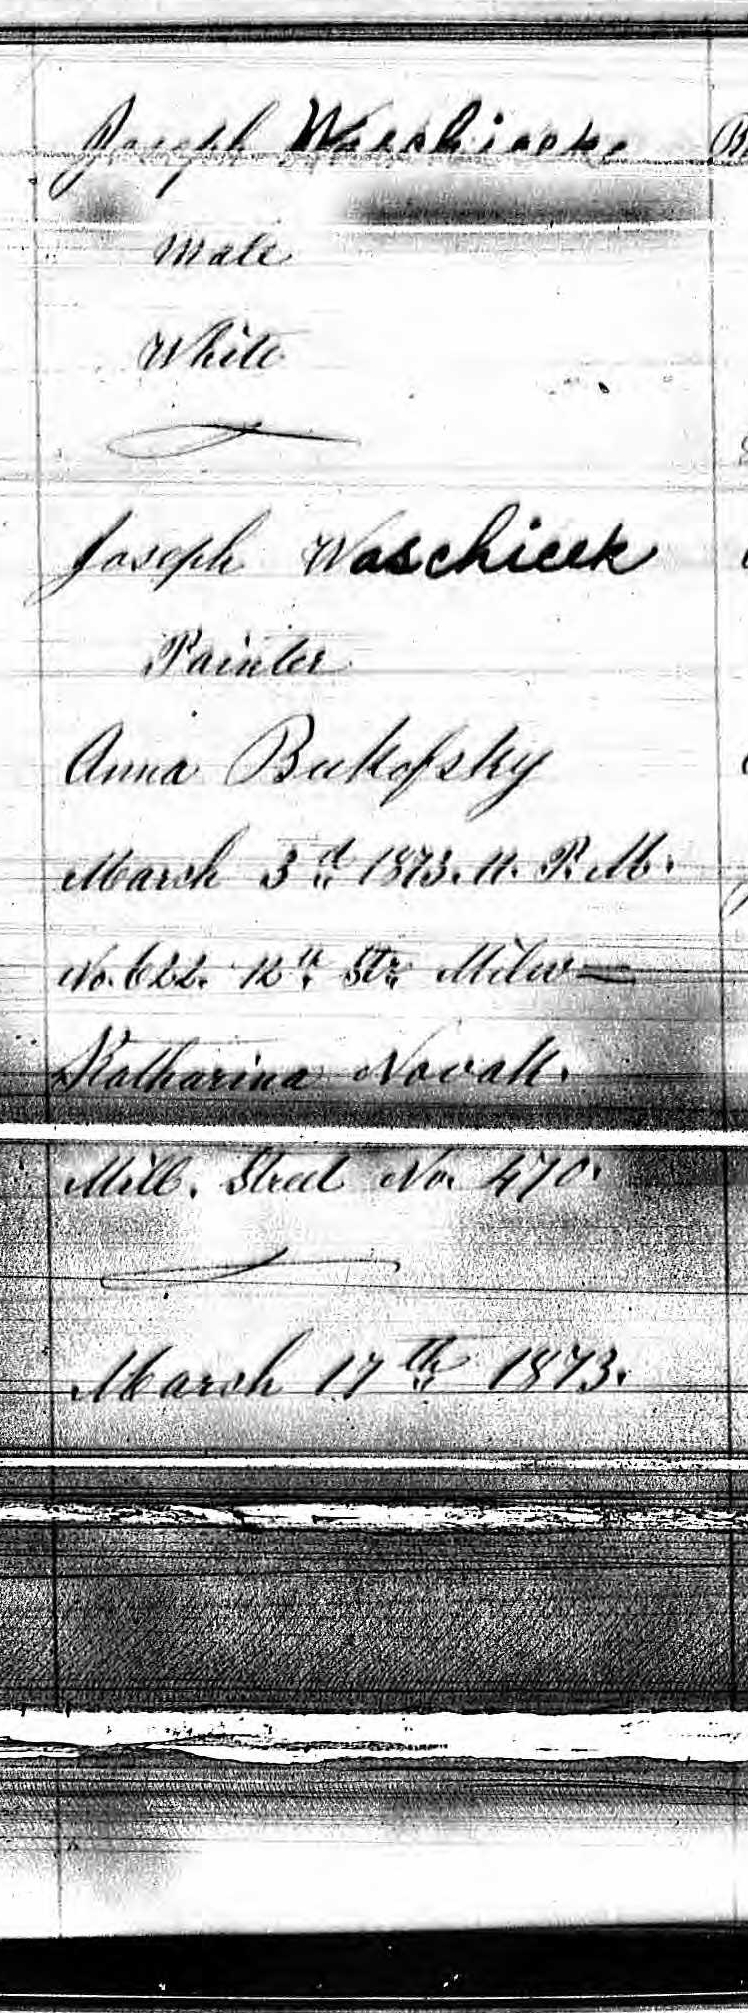 Joseph Waschicek.
Male
White
Joseph Waschicek
Painter
Anna Bukofsky
March 3d 1873. 11. P. M.
No. 622. 12th Str. Milw
Katharina Novak.
Mill. Street No. 470.
March 17th 1873.